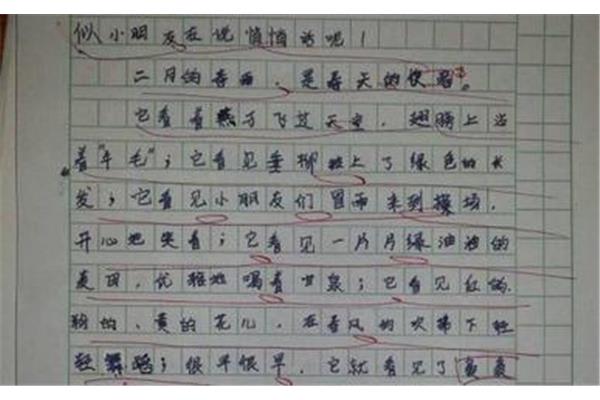 似小朋友在说悄悄话呢！
二月的春雨，是春天的使者。
它看着燕子飞过天空，翅膀上沾
着“牛毛”；它看见垂柳披上了绿色的长
发；它看见小朋友们冒雨来到操场，
开心地笑着；它看见一片片绿油油的
麦田，优雅地喝着甘泉；它看见红的、
粉的、黄的花儿，在春风的吹拂下轻
轻舞蹈；很早很早，它就看见了